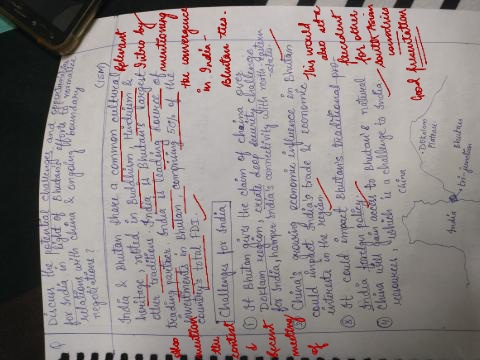 Q Discuss the potential challenges and opportunities
for India in light of Bhutan's efforts to normalize
relations with china & ongoing boundary
negotiations? (15M)
India & Bhutan share a common cultural
heritage, rooted in Buddhism, Hinduism &
other traditions. India is Bhutan's largest
trading partner. India is leading source of
investments in Bhutan comprising 50% of the
country's total FDI.
Relevant
Intro by
mentioning
the convergence
in India-
Bhutan ties.
also
mention
the
context
recent
meeting
of
Challenges for India
① If Bhutan gives the claim of china over
Doklam region, create deep security challenge
for India, hamper India's connectivity with north eastern
states.
② China's growing economic influence in Bhutan
could impact India's trade & economic
interests in the region
③ It could impact Bhutan's traditional pro-
India foreign policy
④ China will gain access to Bhutan's natural
resources, which is a challenge to India
This would
also set a
precedent
for other
south Asian
countries
Good presentation
China
Doklam
Plateau
Bhutan
India
Tri-junction